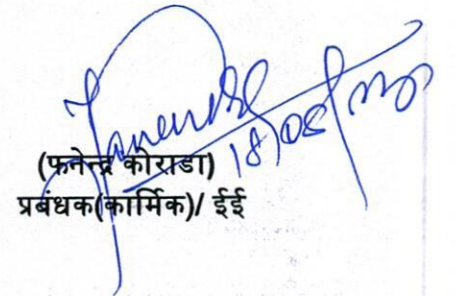 18/08/
(फनेन्द्र कोराडा)
प्रबंधक(कार्मिक)/ ईई